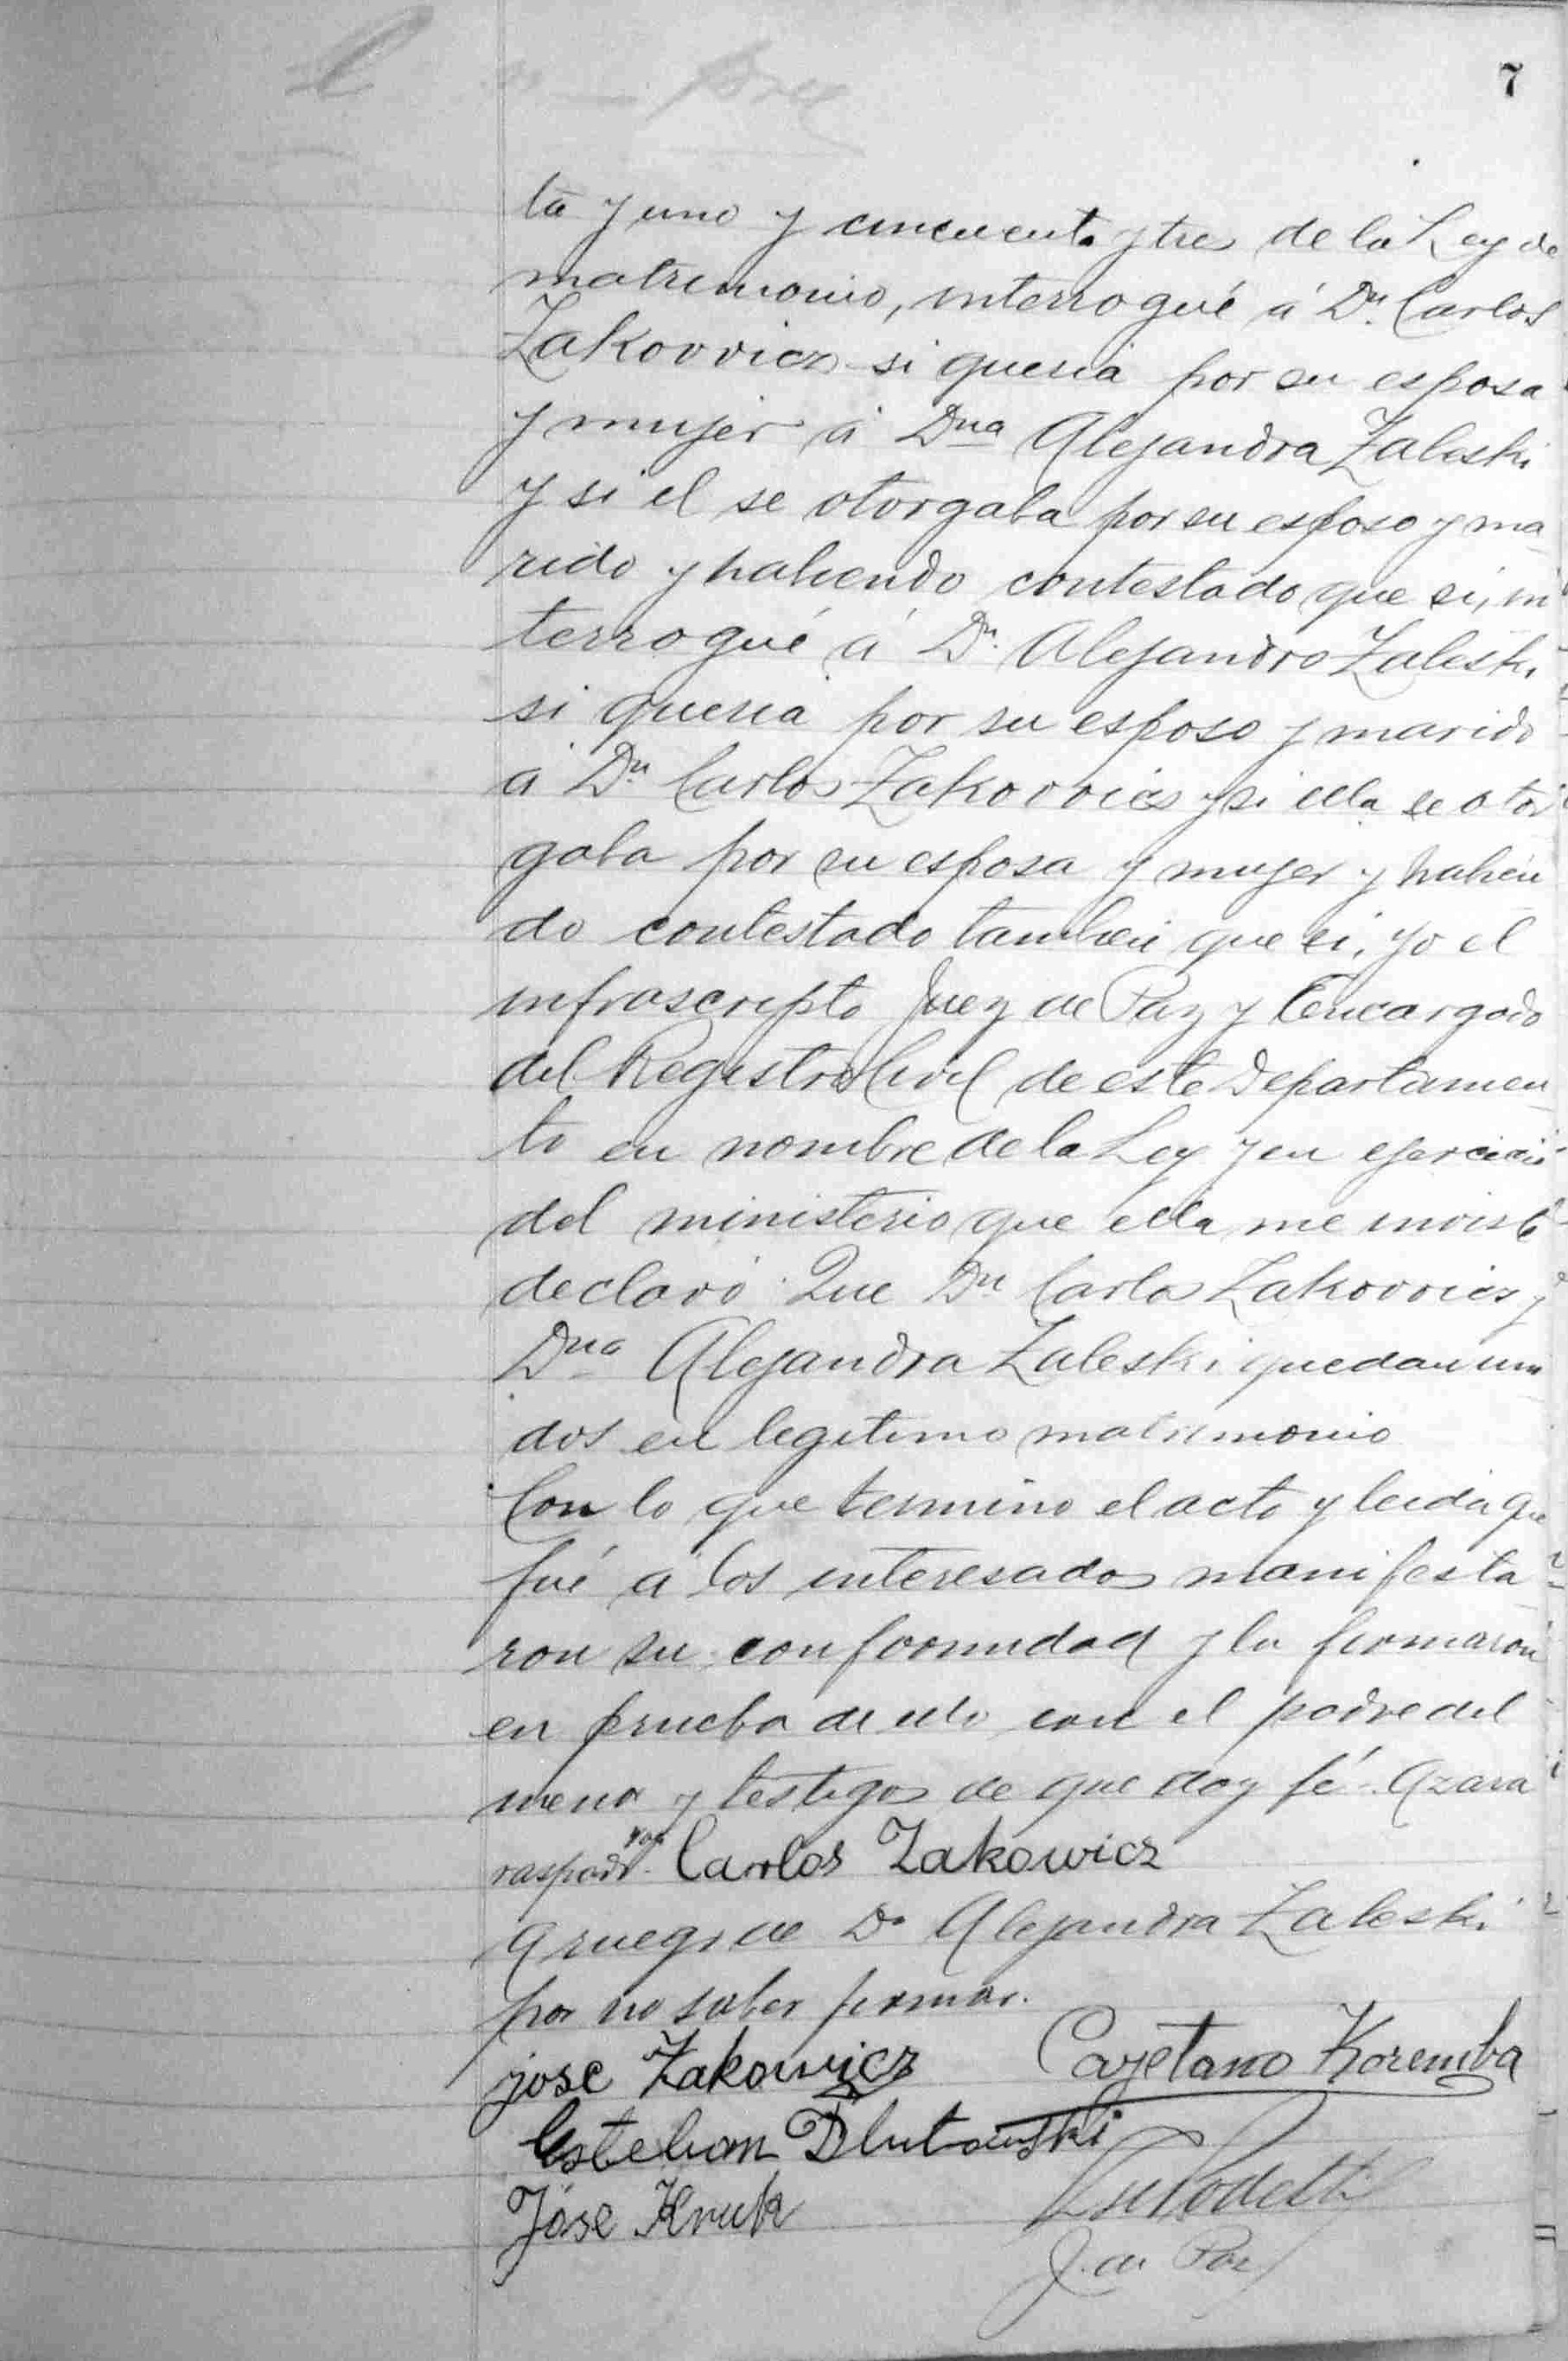 7
ta y uno y cincuenta y tres de la Ley de
matrimonio, interrogué á Dn. Carlos
Zakovvicz si queria por su esposa
y mujer á Dna Alejandra Zaleski
y si el se otorgaba por su esposo y ma
rido y habiendo contestado que si, in
terrogué á Dn. Alejandro Zaleski
si queria por su esposo y marido
á Dn Carlos Zakovvics y si ella se otor
gaba por su esposa y mujer y habien
do contestado tambien que si, yo el
infrascripto Juez de Paz y Encargado
del Registro Civil de este Departamen
to en nombre de la Ley y en ejercicio
del ministerio que ella me inviste
declaro Que Dn Carlos Zakovvics y
Dna Alejandra Zaleski quedan uni
dos en legitimo matrimonio
Con lo que termino el acto y leida que
fué á los interesados manifesta
ron su conformidad y la firmaron
en prueba de ello con el padre del
menor y testigos de que doy fé. Azara
raspado Carlos Zakowicz
A ruego de Da Alejandra Zaleski
por no saber firmar.
jose Zakowicz Cayetano Koremba
Esteban Dlutowski
José Kruk
J. de Paz